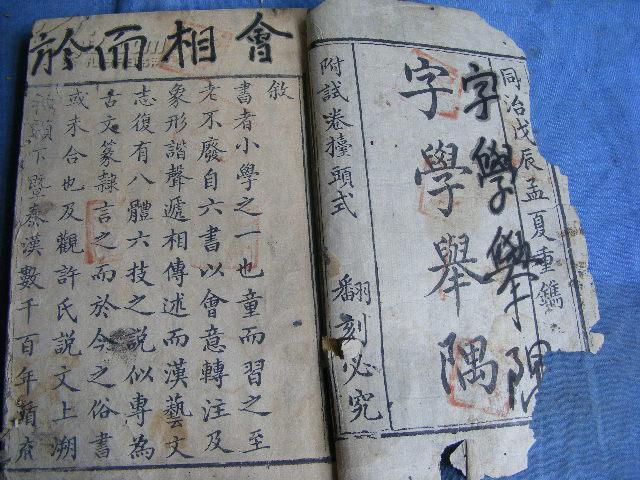 同治戊辰孟夏重鐫
字學舉隅
字學舉隅
附試卷擡頭式
翻刻必究
會相而於
敘
書者小學之一也童而習之至
老不廢自六書以會意轉注及
象形諧聲遞相傳述而漢藝文
志復有八體六技之說似專為
古文篆隸言之而於今之俗書
或未合也及觀許氏說文上溯
頡下暨秦漢數千百年